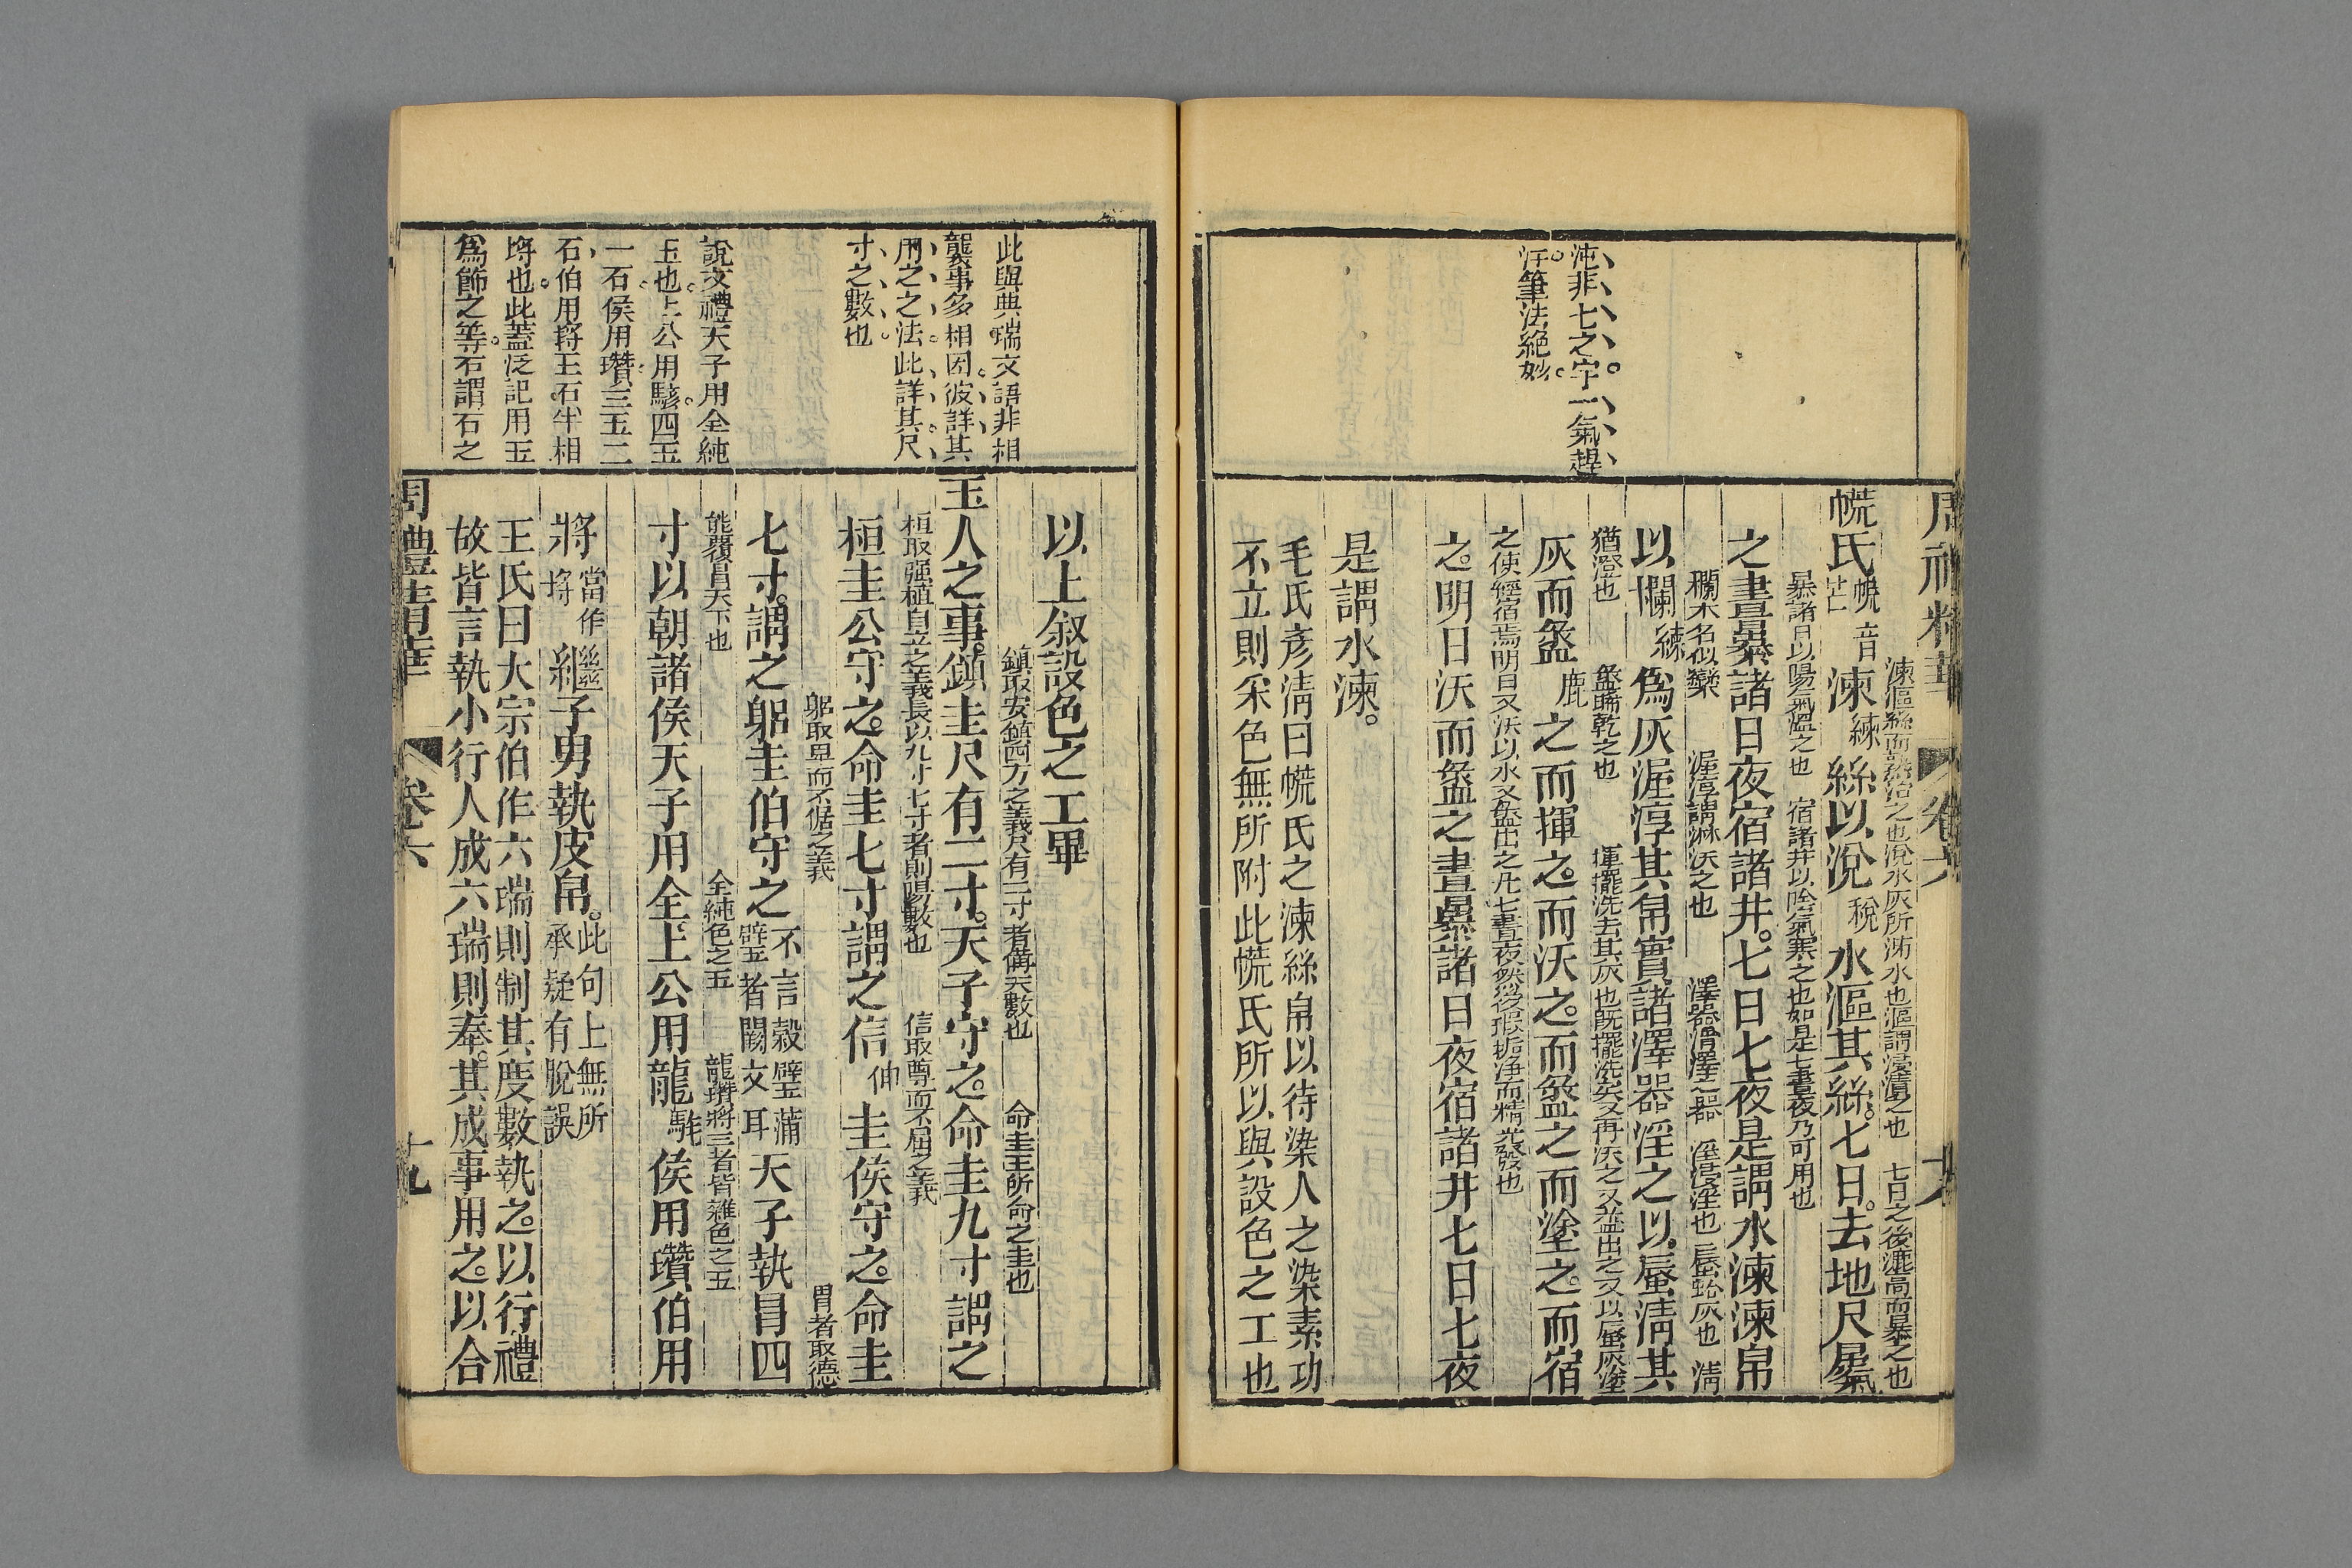 周禮精華
卷六
沌非七之字一氣趕
汙筆法絕妙
湅漚絲而熟治之也涗水灰所沛水也漚謂浸漬之也 七日之後漉高而暴之也
㡛氏㡛音芒湅練絲以涗稅水漚其絲七日去地尺暴
暴諸日以陽氣溫之也 宿諸井以陰氣寒之也如是七晝夜乃可用也
之晝暴諸日夜宿諸井七日七夜是謂水湅湅帛
欄木名似欒 渥淳謂淋沃之也 澤器滑澤之器 淫浸淫也蜃蛤灰也 淸
以欄練爲灰渥淳其帛實諸澤器淫之以蜃淸其
猶澄也 盝晞乾之也 揮擺洗去其灰也旣擺洗矣又再沃之又盝出之又以蜃灰塗
灰而盝鹿之而揮之而沃之而盝之而塗之而宿
之使經宿焉明日又沃以水又盝出之凡七晝夜然後瑕垢淨而精光發也
之明日沃而盝之晝暴諸日夜宿諸井七日七夜
是謂水湅
毛氏彥淸曰㡛氏之湅絲帛以待染人之染素功
不立則采色無所附此㡛氏所以與設色之工也
此與典瑞文語非相
襲事多相因彼詳其
用之之法此詳其尺
寸之數也
說文禮天子用全純
玉也上公用駹四玉
一石侯用瓚三玉二
石伯用埒玉石半相
埒也此蓋泛記用玉
爲飾之等石謂石之
以上叙設色之工畢
鎭取安鎭四方之義尺有二寸者備天數也 命圭王所命之圭也
玉人之事鎭圭尺有二寸天子守之命圭九寸謂之
桓取强植自立之義長以九寸七寸者則陽數也 信取尊而不屈之義
桓圭公守之命圭七寸謂之信伸圭侯守之命圭
躬取卑而不倨之義 冒者取德
七寸謂之躬圭伯守之不言穀璧蒲璧者闕文耳天子執冒四
能覆冒天下也 全純色之玉 龍瓚將三者皆雜色之玉
寸以朝諸侯天子用全上公用龍駹侯用瓚伯用
將當作埒繼子男執皮帛此句上無所承疑有脫誤
王氏曰大宗伯作六瑞則制其度數執之以行禮
故皆言執小行人成六瑞則奉其成事用之以合
周禮精華
卷六
十九